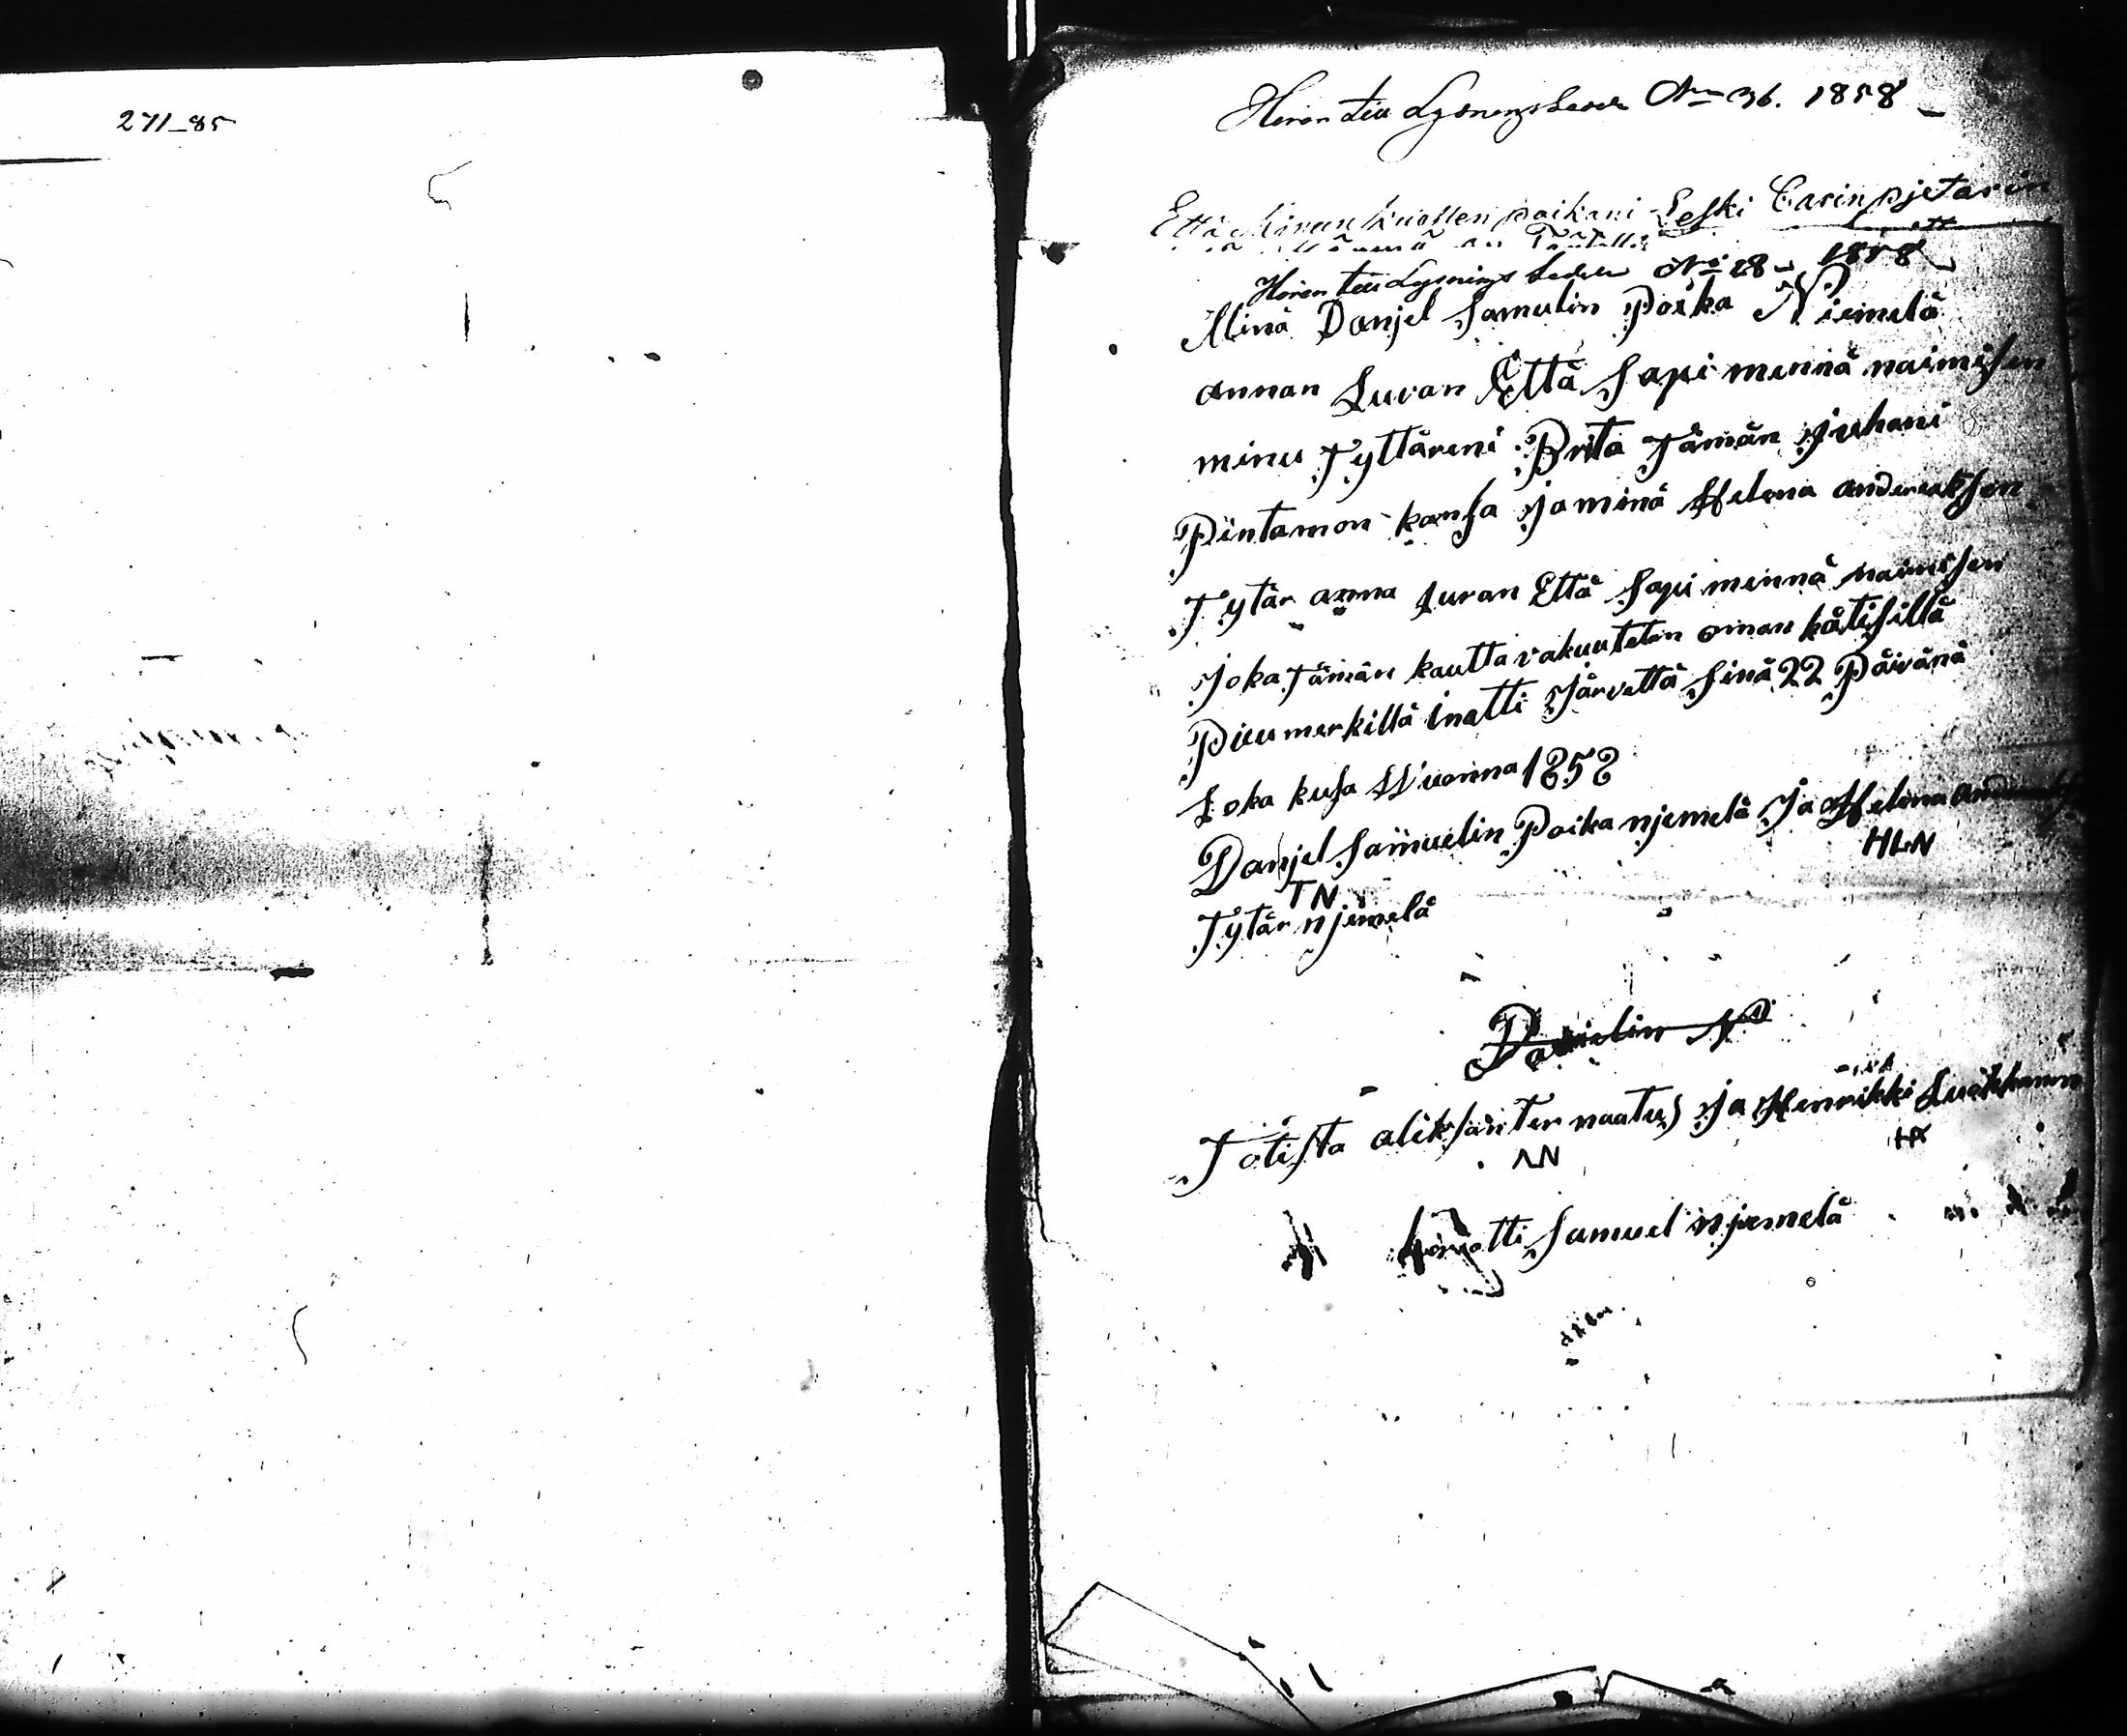 271-85
Hörer till Lysningsbevis No 36. 1858
Että Minun kuollen poikani Leski Carin pjetarin
Hörer till Lysnings No 28 1858
Minä Danjel Samulin Poika Niemelä
annan Luvan Että Sapi mennä naimisen
minu Tyttäreni Brita Tämän juhani
Pintamon kansa ja minä Helena andereaksen
Tytär anna Luvan Että Sapi mennä naimisen
joka Tämän kautta vakuutetan oman kätisillä
Puumerkillä inatti Järvettä Sinä 22 Päivänä
Loka kusa Wuonna 1858
Danjel Samuelin Poika njemelä ja Helena
HLN
TN
Tytär njemelä
Danielin N
Totista aleksänter naatus ja Henrikki
AN
Samuel njemelä